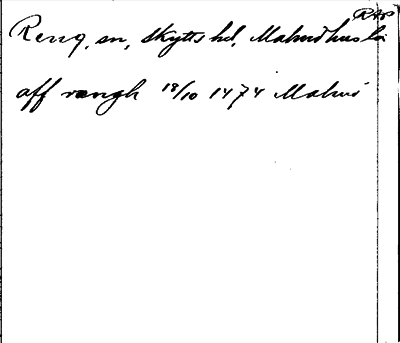 RAP
Reng, sn, Skytts hd, Malmöhus lä
aff rængh 18/10 1474 Malmö